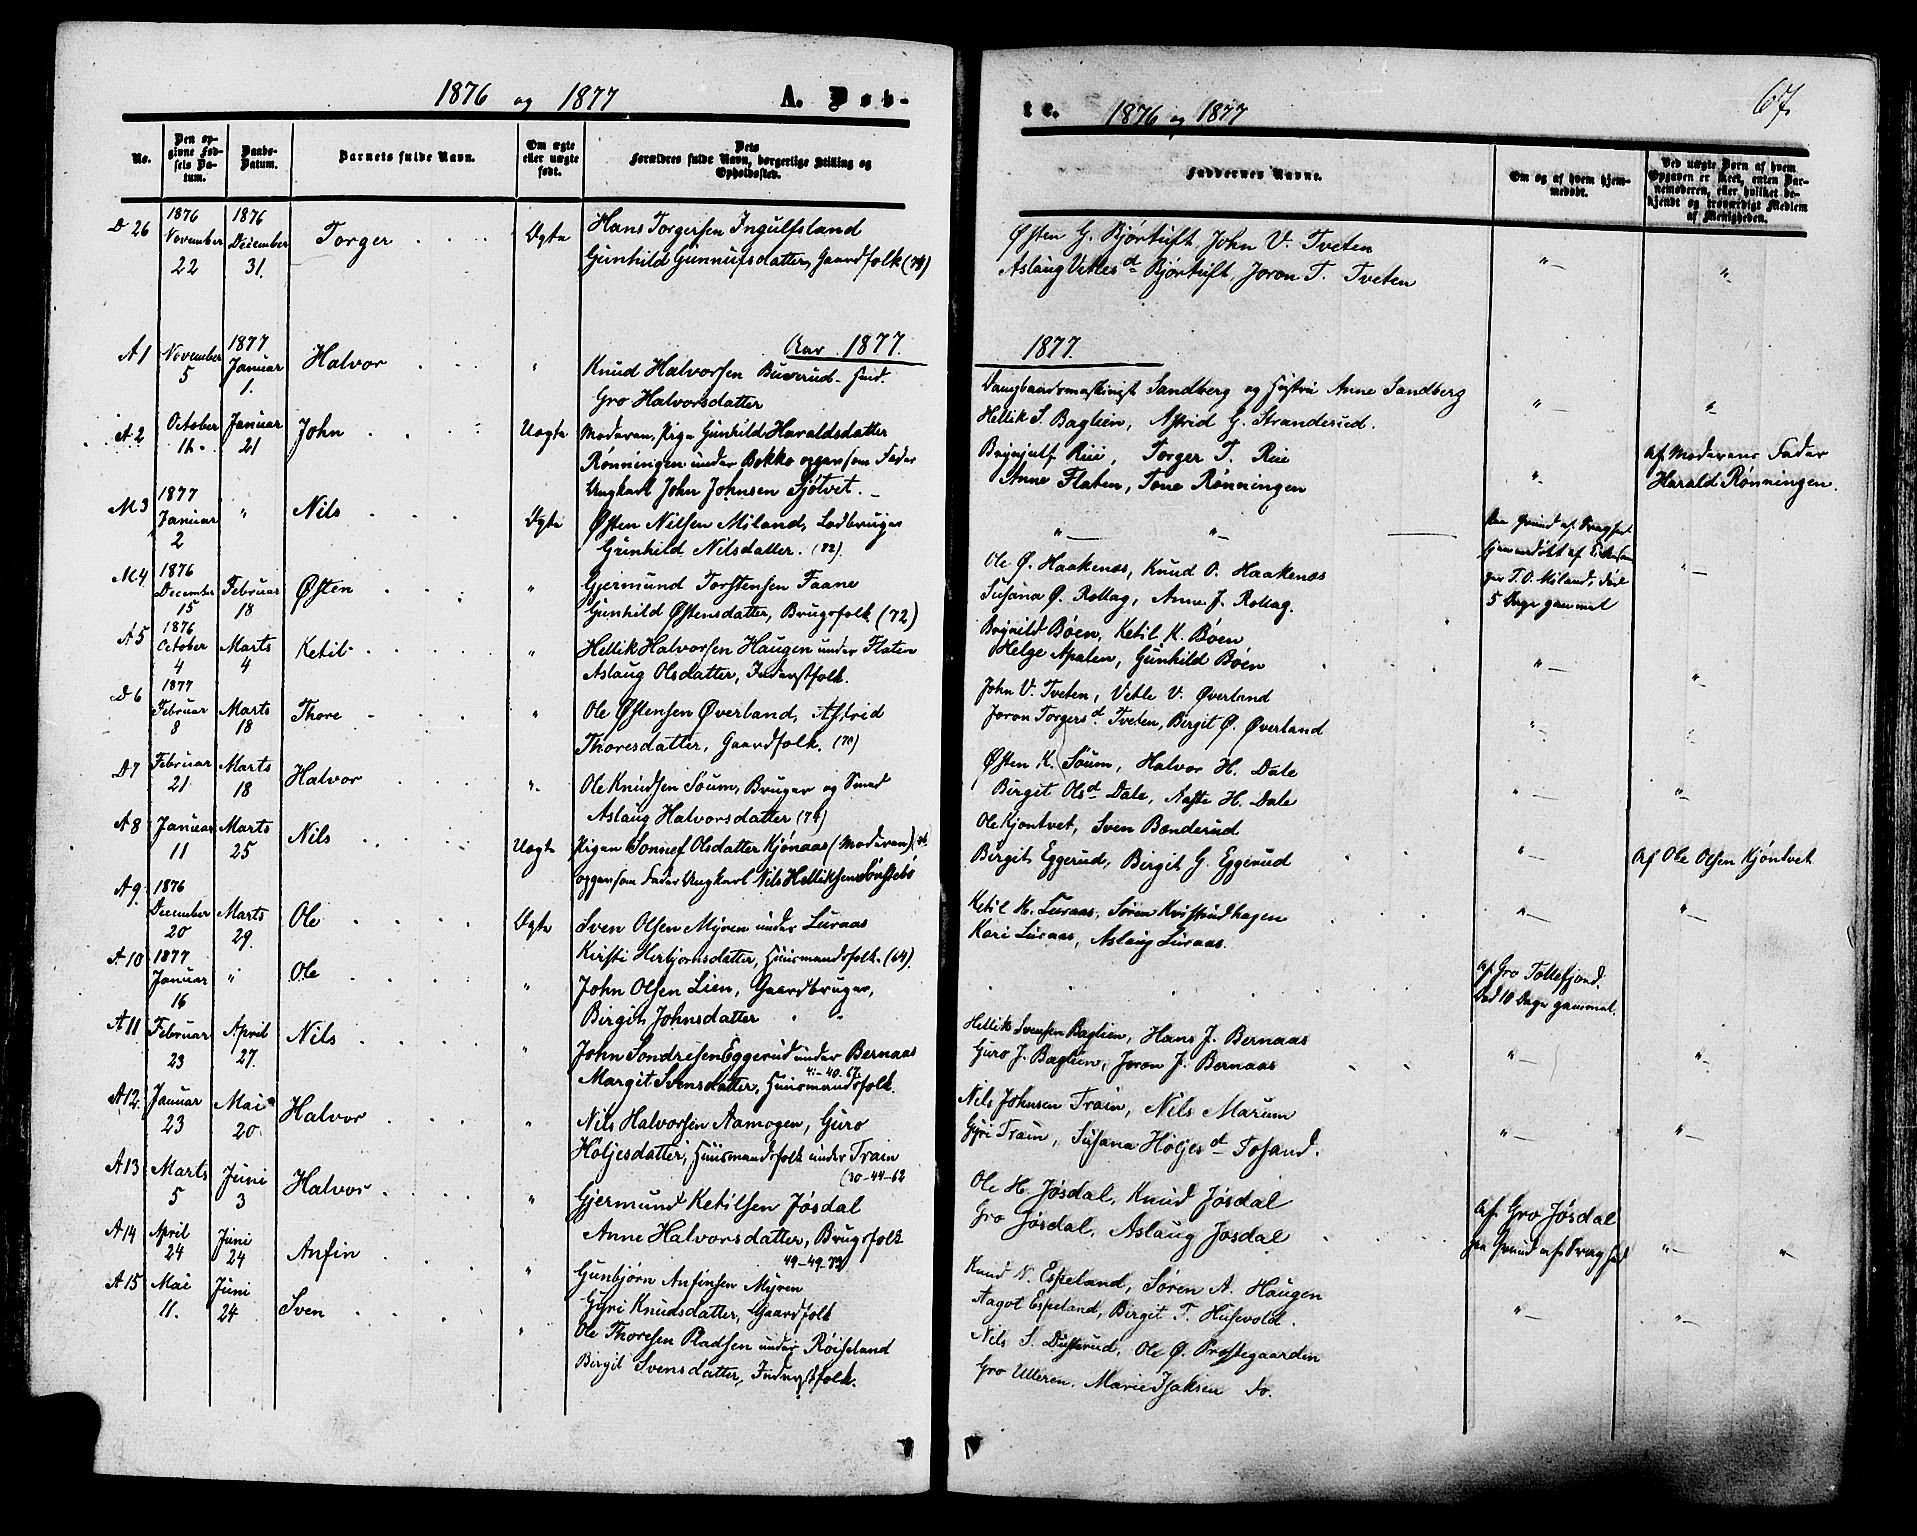 1876 og 1877 A. Døb-
No. Den op-givne Fød-sels Da-tum. Daabs-Datum. Barnets fulde Navn. Om ægte eller uægte født. Dets Forældres fulde Navn, borgerlige Stilling og Opholdssted.
D 26 1876 November 22 1876 December 31. Torger Ægte Hans Torgersen Ingulfsland
Gunhild Gunnufsdatter, Gaardfolk (76)
Aar 1877.
A 1 November 5 1877 Januar 1. Halvor " Knud Halvorsen Buverud
Gro Halvorsdatter
A 2 October 16 Januar 21 John Uægte Moderen, Pige Gunhild Haraldsdatter
Rønningen under Bokko opgav som Fader
Ungkarl John Johnsen Sjøtvet.
M 3 1877 Januar 2 " Nils Ægte Østen Nilsen Miland, Lodbruger
Gunhild Nilsdatter. (72).
M 4 1876 December 15 Februar 18 Østen " Gjermund Torstensen Faane
Gunhild Østensdatter, Brugsfolk (72)
A 5 1876 October 4 Marts 4 Ketil " Hellik Halvorsen Haugen under Flaten
Aslaug Olsdatter, Inderstfolk.
D 6 1877 Februar 8 Marts 18 Thore " Ole Østensen Øverland, Astrid
Thoresdatter, Gaardfolk. (70)
D 7 Februar 21 Marts 18 Halvor " Ole Knudsen Soum, Bruger og Smed
Aslaug Halvorsdatter (74)
A 8 Januar 11 Marts 25 Nils Uægte Pigen Sonnef Olsdatter Kjønaas (Moderen)
opgav som Fader Ungkarl Nils Helliksen Sønstebø
A 9 1876 December 20 Marts 29. Ole Ægte Sven Olsen Myren under Luraas
Kirsti Herbjørnsdatter, Huusmandsfolk. (64).
A 10 1877 Januar 16 " Ole " John Olsen Lien, Gaardbruger,
Birgit Johnsdatter " "
A 11 Februar 23 April 27. Nils " John Sondresen Eggerud under Bernaas
Margit Svensdatter, Huusmandsfolk. 41-40-67.
A 12 Januar 23 Mai 20 Halvor " Nils Halvorsen Aamogen, Guro
Høljesdatter, Huusmandsfolk under Train
(30-44-62
A 13 Marts 5 Juni 3 Halvor " Gjermund Ketilsen Jøsdal
Anne Halvorsdatter, Brugsfolk
49-49-72)
A 14 April 24 Juni 24 Anfin " Gunbjørn Anfinsen Myren
Gyri Knudsdatter, Gaardfolk
A 15 Mai 11. Juni 24 Sven " Ole Thoresen Pladsen under Røiseland
Birgit Svensdatter, Inderstfolk.
te. 1876 og 1877 67.
Faddernes Navne. Om og af hvem hjem-medøbt. Ved uægte Børn af hvem Opgaven er skeet, enten Bar-nemoderen, eller hvilket be-kjendt og troværdigt Medlem af Menigheden.
Østen G. Bjørtuft, John V. Tveten
Aslaug Vetlesd Bjørtuft, Joron T. Tveten " "
1877.
Sandberg og Hustru Anne Sandberg
Hellik S. Baglien, Astrid G. Stranderud. " "
Brynjulf Rui, Torger T. Rui
Anne Flaten, Tone Rønningen " Af Moderens Fader
Harald Rønningen.
" " Paa Grund af Svaghed
hjemmedøbt af
T. O. Miland, død
5 Dage gammel "
Ole Ø. Haakenæs, Knud O. Haakenæs
Susana Ø. Rollag, Anne J. Rollag.
Brynild Bøen, Ketil K. Bøen
Helge Apalen, Gunhild Bøen "
John V. Tveten, Vetle V. Øverland "
Joron Torgersd Tveten, Birgit Ø. Øverland " "
Østen K. Soum, Halvor H. Dale
Birgit Olsd Dale, Aaste H. Dale " "
Ole Kjontvet, Sven Bønderud
Birgit Eggerud, Birgit G. Eggerud " Af Ole Olsen Kjøntvet
Ketil H. Luraas, Søren
Kari Luraas, Aslaug Luraas. " "
Af Gro Tollefsjord.
Død 10 Dage gammel.
Hellik Svensen Baglien, Hans J. Bernaas
Guro J. Baglien, Joron J. Bernaas " "
Nils Johnsen Train, Nils Marum
Gyri Train, Susana Høljesd Tosand. " "
Ole H. Jøsdal, Knud Jøsdal
Gro Jøsdal, Aslaug Jøsdal Af Gro Jøsdal
paa Grund af Svaghed " "
Knud N. Espeland, Søren A. Haugen
Aagot Espeland, Birgit T. Husevold. " "
Nils S. Dusterud, Ole Ø. Prestegaarden
Gro Ulleren, Marie Isaksen do.